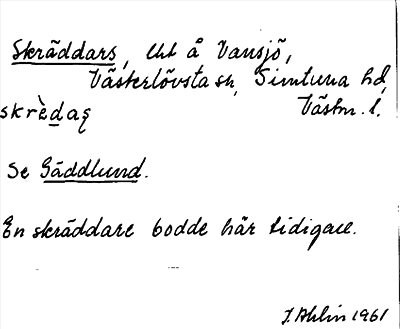 Skräddars, lht å Vansjö,
Västerlövsta sn, Simtuna hd,
skrèdaş Västm. l.
Se Gäddlund.
En skräddare bodde här tidigare.
J. Ahlin 1961